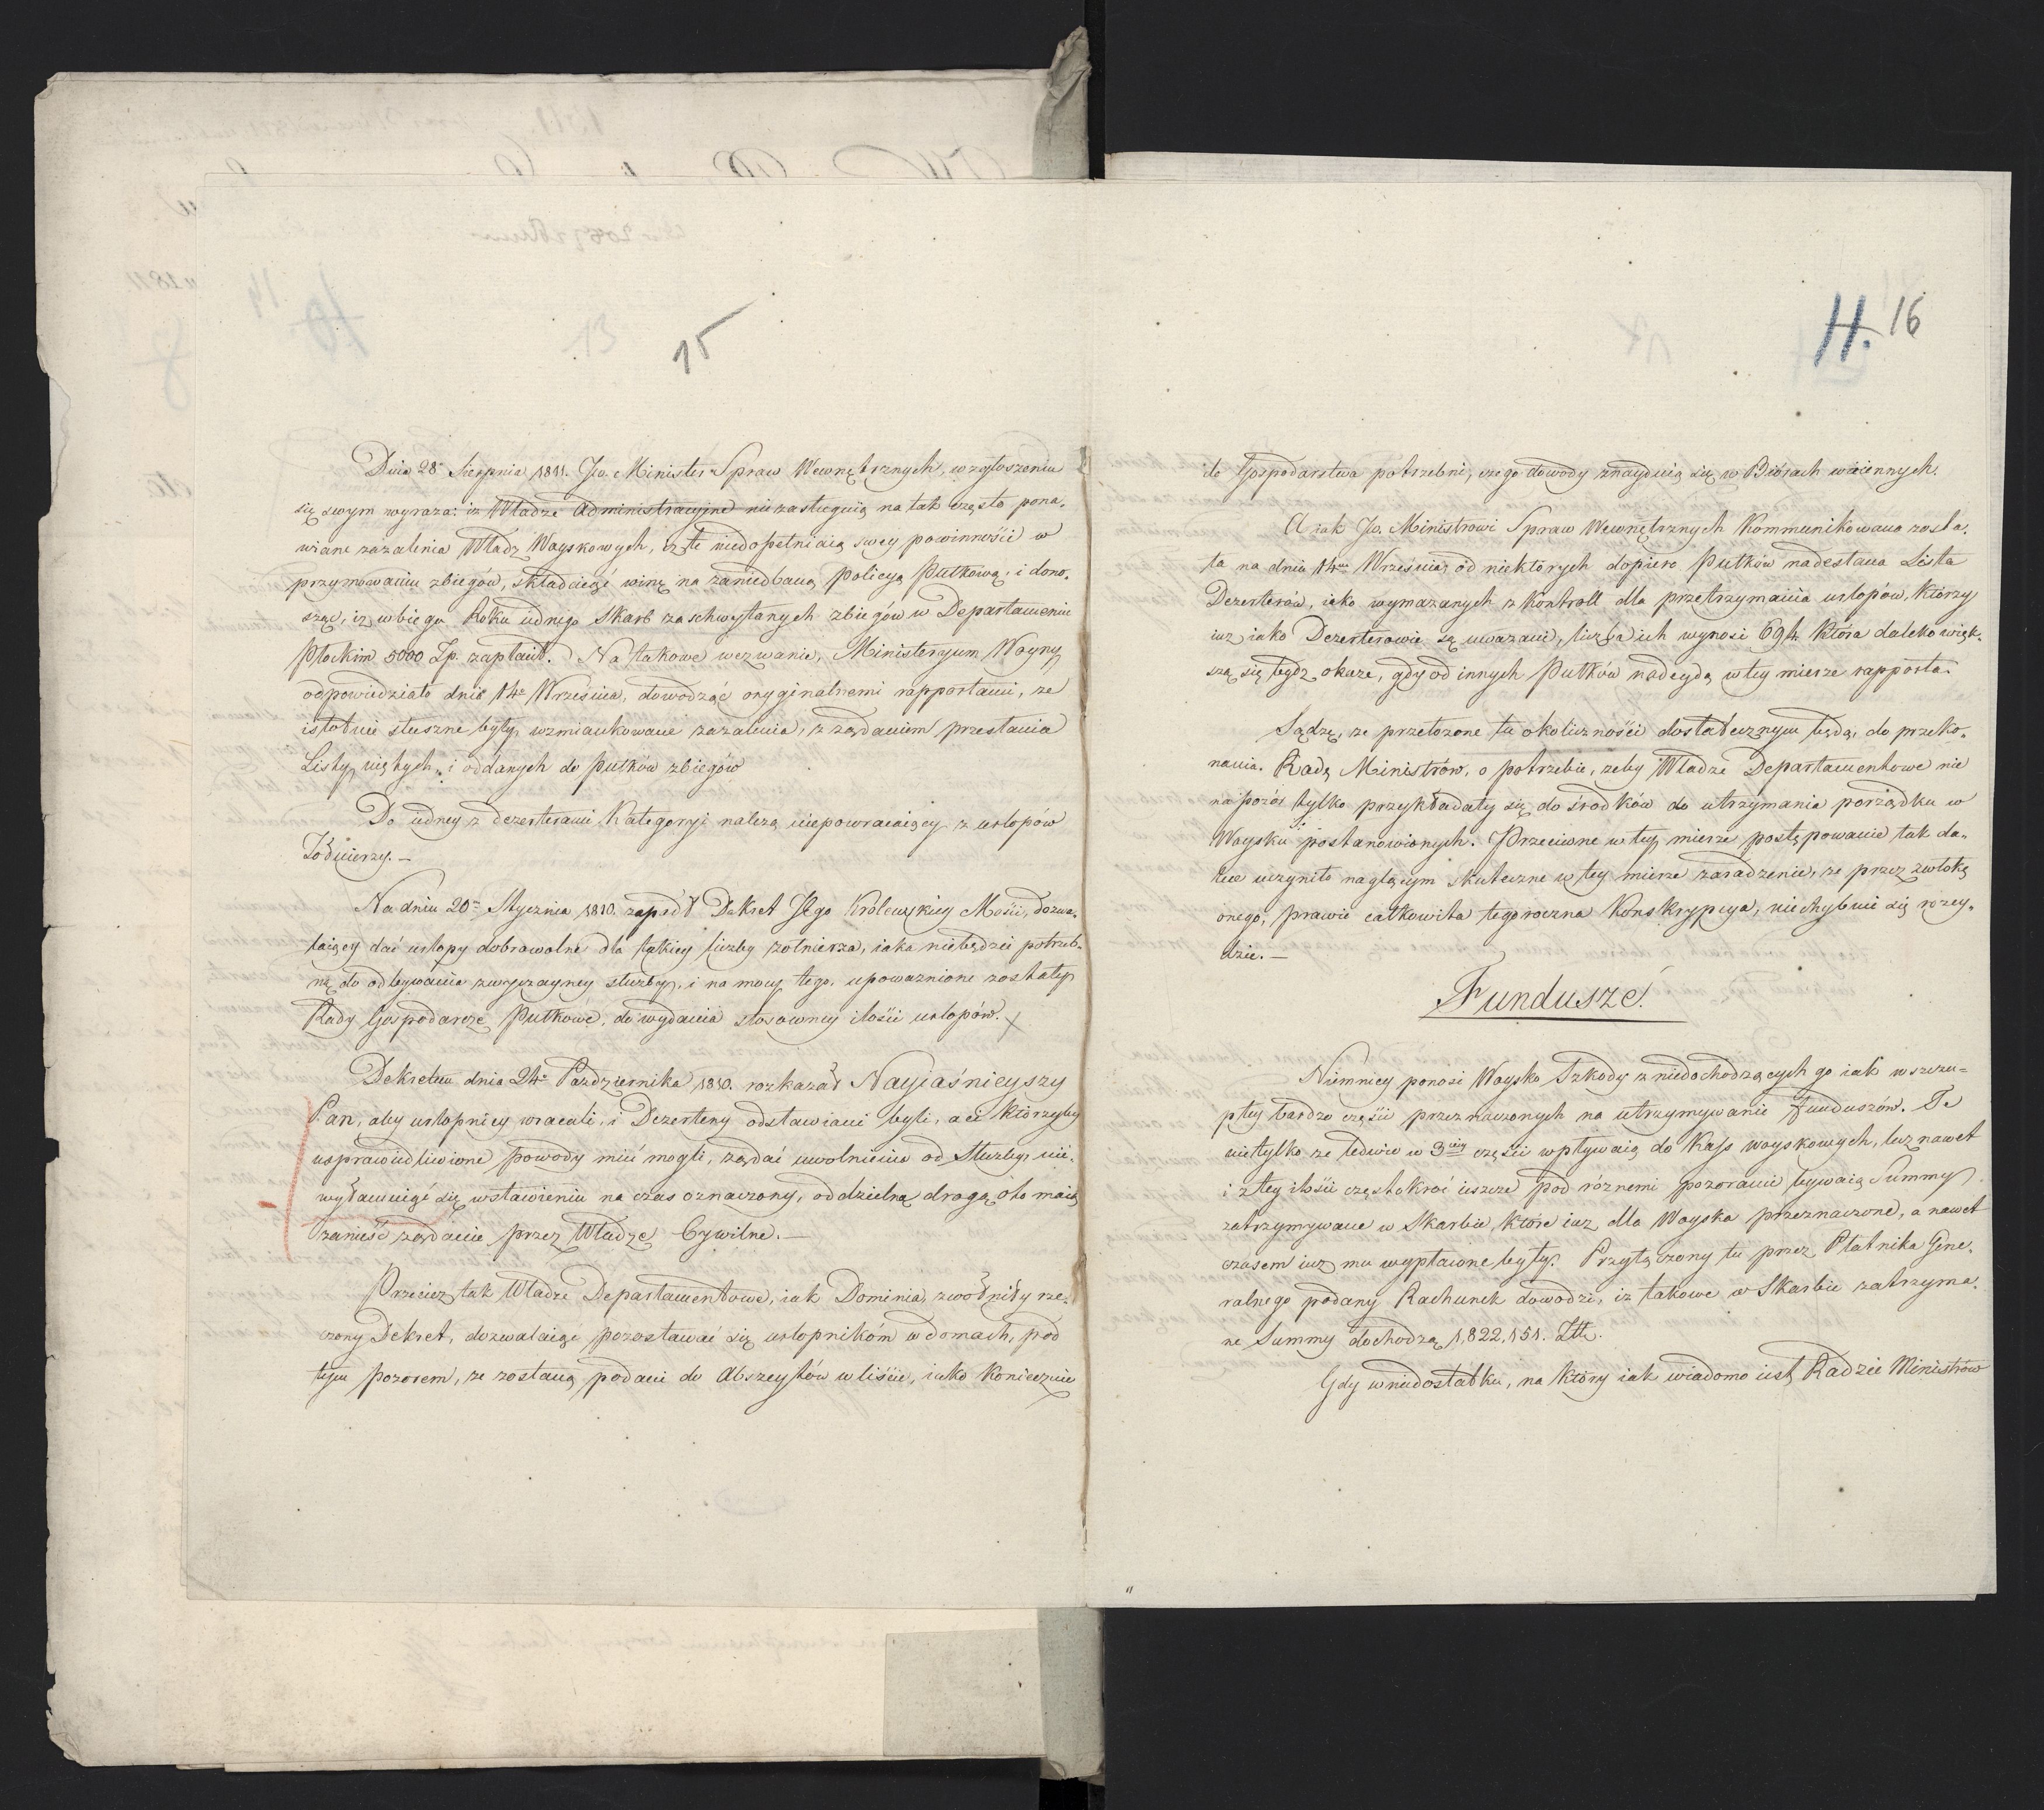 15
Dnia 28º Sierpnia 1811. Jw. Minister Spraw Wewnętrznych, w zgłoszeniu
się swym wyraza: iz Władze Administracyine nie zasługuią na tak często pona„
wiane zazalenia Władz Woyskowych, iz te niedopełniaią swey powinności w
przymowaniu zbiegów, składaiąc winę na zaniedbaną policyą Pułkową, i dono„
sząc, iz w biegu Roku iednego Skarb za schwytanych zbiegów w Departamencie
Płockim 5000 Zp. zapłacił. Na takowe wezwanie, Ministeryum Woyny
odpowiedziało dnia 14º Września, dowodząc oryginalnemi rapportami, ze
istotnie słuszne były wzmiankowane zazalenia, z ządaniem przesłania
Listy uiętych, i oddanych do Pułków zbiegów
Do iedney z dezerterami Kategoryi nalezą niepowracaiący z urlopów
Zołnierzy. —
Na dniu 20m Stycznia 1810. zapadł Dekret Jego Królewskiey Mości, dozwa„
laiący dać urlopy dobrowolne dla takiey liczby zołnierza, iaka niebędzie potrzeb„
ną do odbywania zwyczayney słuzby, i na mocy tego, upowaznione zostały
Rady Gospodarcze Pułkowe, do wydania stosowney ilości urlopów. X
Dekretem dnia 24º Pazdziernika 1810. rozkazał Nayiaśnieyszy
Pan, aby urlopnicy wracali, i Dezertery odstawiani byli, a ci którzyby
usprawiedliwione powody mieć mogli, ządać uwolnienia od Słuzby, nie„
wyłamuiąc się wstawieniu na czas oznaczony, oddzielną drogą, oto maią
zanieść ządanie przez Władze Cywilne. —
Przeciez tak Władze Departamentowe, iak Dominia, zwolniły rze„
czony Dekret, dozwalaiąc pozostawać się urlopników w domach, pod
tym pozorem, ze zostaną podani do Abszeytów w liście, iako koniecznie
11. 16
do Gospodarstwa potrzebni, czego dowody znayduią się w Biórach woiennych.
A iak Jw. Ministrowi Spraw Wewnętrznych Kommunikowana zosta„
ła na dniu 14m Września, od niektórych dopiero Pułków nadesłana Lista
Dezerterów, iako wymazanych z Kontroll dla przetrzymania urlopów, którzy
iuz iako Dezerterowie są uwazani, liczba ich wynosi 694. która daleko więk„
szą się bydz okaze, gdy od innych Pułków nadeydą w tey mierze rapporta.
Sądzę, ze przełozone tu okoliczności dostatecznym będą, do przeko„
nania. Radę Ministrów, o potrzebie, zeby Władze Departamentowe nie
na pozór tylko przykładały się do środków do utrzymania porządku w
Woysku postanowionych. Przeciwne w tey mierze postępowanie tak da„
lece uczyniło naglącym skuteczne w tey mierze zaradzenie, ze przez zwłokę
onego, prawie całkowita tegoroczna Konskrypcya, niechybnie się rozey„
dzie. —
Fundusze.
Niemniey ponosi Woysko Szkody z niedochodzących go iak w szczu=
płey bardzo części przeznaczonych na utrzymywanie Funduszów. Te
nietylko ze ledwie w 3ciey części wpływaią do Kass woyskowych, lecz nawet
i z tey ilości częstokroć ieszcze pod róznemi pozorami bywaią Summy
zatrzymywane w Skarbie, które iuz dla Woyska przeznaczone, a nawet
czasem iuz mu wypłacone były. Przyłączony tu przez Płatnika Gene„
ralnego podany Rachunek dowodzi, iz takowe w Skarbie zatrzyma„
ne Summy dochodzą 1,822,151. Złł.
Gdy w niedostatku, na który iak wiadomo iest Radzie Ministrów